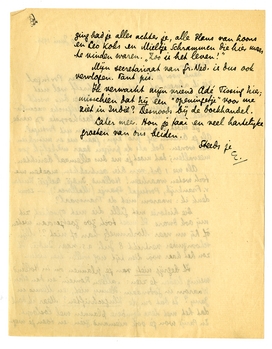 ging had je alles achter je, alle Hans van Loons
en Leo Kohs en Mieltje Schrammen die hier waren
te vinden waren. "Zoo is het leven!"
Mijn secretariaat van Gr. Ned. is dus ook
vervlogen. Tant pis.
Ik verwacht mijn vriend Adé Tissing hier,
misschien dat hij een "openingetje" voor me
ziet in Indië? Desnoods bij de boekhandel.
Later meer. Hou je taai en veel hartelijke
groeten van ons beiden.
Steeds je
E.